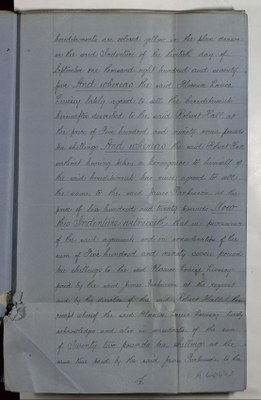 hereditaments are colored yellow in the plan drawn
on the said Indenture of the day of
September one thousand eight hundred and seventy
And whereas the said
having lately agreed to sell the hereditaments
hereinafter described to the said Robert Hall at
the price of Five hundred and ninety seven pounds
ten shillings And whereas the said Robert Hall
without having taken a conveyance to himself of
the said hereditaments has since agreed to sell
the same to the said James Parkinson at the
price of Six hundred and twenty pounds Now
this Indenture witnesseth that in pursuance
of the said agreements and in consideration of the
sum of Five hundred and ninety seven pounds
ten shillings to the said
paid by the said James Parkinson at the request
and by the direction of the said Robert Hall the
receipt whereof the said hereby
acknowledges and also in consideration of the sum
of Twenty two pounds ten shillings at the
same time paid by the said James Parkinson to the